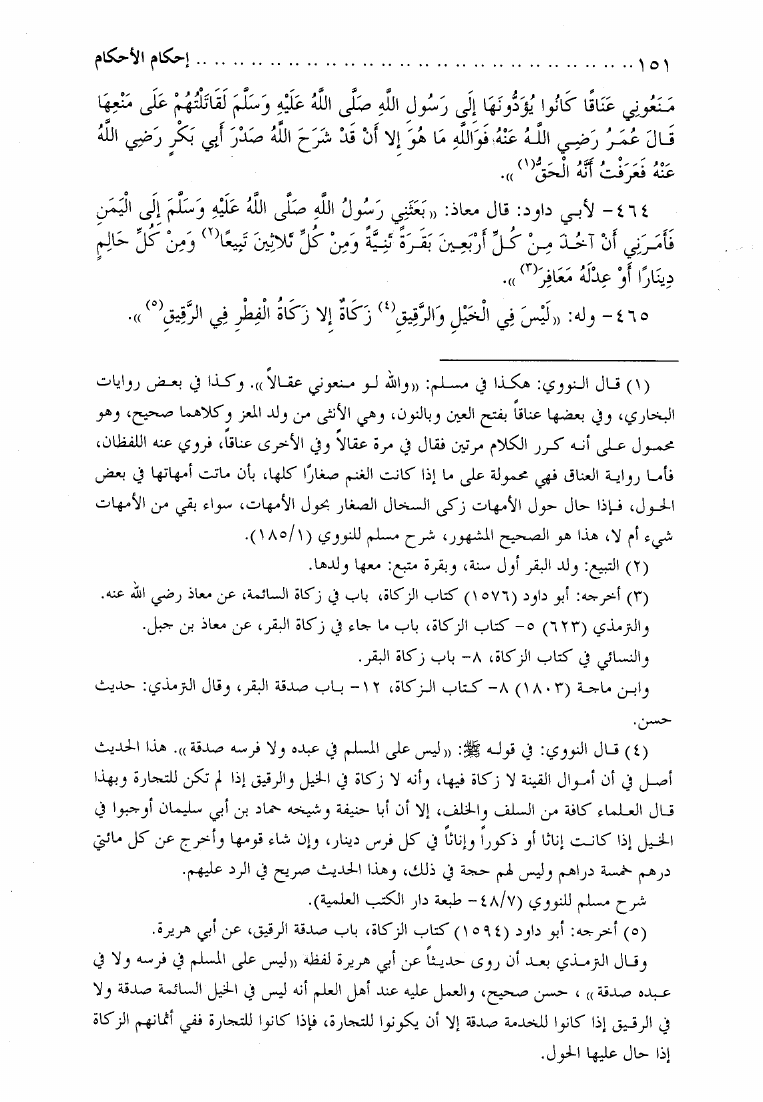 ١٥١ .................................................... إحكام الأحكام
مَنَعُونِي عَنَاقًا كَانُوا يُؤَدُّونَهَا إِلَى رَسُولِ اللهِ صَلَّى اللهُ عَلَيْهِ وَسَلَّمَ لَقَاتَلْتُهُمْ عَلَى مَنْعِهَا
قَالَ عُمَرُ رَضِي اللهُ عَنْهُ: فَوَاللهِ مَا هُوَ إِلا أَنْ قَدْ شَرَحَ اللهُ صَدْرَ أَبِي بَكْرٍ رَضِي اللهُ
عَنْهُ فَعَرَفْتُ أَنَّهُ الْحَقُّ(١)».
٤٦٤- لأبي داود: قال معاذ: «بَعَثَنِي رَسُولُ اللهِ صَلَّى اللهُ عَلَيْهِ وَسَلَّمَ إِلَى الْيَمَنِ
فَأَمَرَنِي أَنْ آخُذَ مِنْ كُلِّ أَرْبَعِينَ بَقَرَةً ثَنِيَّةً وَمِنْ كُلِّ ثَلاثِينَ تَبِيعًا(٢) وَمِنْ كُلِّ حَالِمٍ
دِينَارًا أَوْ عِدْلَهُ مَعَافِرَ(٣)».
٤٦٥- وله: «لَيْسَ فِي الْخَيْلِ وَالرَّقِيقِ(٤) زَكَاةٌ إِلا زَكَاةُ الْفِطْرِ فِي الرَّقِيقِ(٥)».
(١) قال النووي: هكذا في مسلم: «والله لو منعوني عقالاً». وكذا في بعض روايات
البخاري، وفي بعضها عناقاً بفتح العين وبالنون، وهي الأنثى من ولد المعز وكلاهما صحيح، وهو
محمول على أنه كرر الكلام مرتين فقال في مرة عقالاً وفي الأخرى عناقاً، فروي عنه اللفظان،
فأما رواية العناق فهي محمولة على ما إذا كانت الغنم صغارًا كلها، بأن ماتت أمهاتها في بعض
الحول، فإذا حال حول الأمهات زكى السخال الصغار بحول الأمهات، سواء بقي من الأمهات
شيء أم لا، هذا هو الصحيح المشهور، شرح مسلم للنووي (١٨٥/١).
(٢) التبيع: ولد البقر أول سنة، وبقرة متبع: معها ولدها.
(٣) أخرجه: أبو داود (١٥٧٦) كتاب الزكاة، باب في زكاة السائمة، عن معاذ رضي الله عنه.
والترمذي (٦٢٣) ٥- كتاب الزكاة، باب ما جاء في زكاة البقر، عن معاذ بن جبل.
والنسائي في كتاب الزكاة، ٨- باب زكاة البقر.
وابن ماجة (١٨٠٣) ٨- كتاب الزكاة، ١٢- باب صدقة البقر، وقال الترمذي: حديث
حسن.
(٤) قال النووي: في قوله ﷺ: «ليس على المسلم في عبده ولا فرسه صدقة». هذا الحديث
أصل في أن أموال القينة لا زكاة فيها، وأنه لا زكاة في الخيل والرقيق إذا لم تكن للتجارة وبهذا
قال العلماء كافة من السلف والخلف، إلا أن أبا حنيفة وشيخه حماد بن أبي سليمان أوجبوا في
الخيل إذا كانت إناثًا أو ذكوراً وإناثاً في كل فرس دينار، وإن شاء قومها وأخرج عن كل مائتي
درهم خمسة دراهم وليس لهم حجة في ذلك، وهذا الحديث صريح في الرد عليهم.
شرح مسلم للنووي (٤٨/٧- طبعة دار الكتب العلمية).
(٥) أخرجه: أبو داود (١٥٩٤) كتاب الزكاة، باب صدقة الرقيق، عن أبي هريرة.
وقال الترمذي بعد أن روى حديثاً عن أبي هريرة لفظه «ليس على المسلم في فرسه ولا في
عبده صدقة» ، حسن صحيح، والعمل عليه عند أهل العلم أنه ليس في الخيل السائمة صدقة ولا
في الرقيق إذا كانوا للخدمة صدقة إلا أن يكونوا للتجارة، فإذا كانوا للتجارة ففي أثمانهم الزكاة
إذا حال عليها الحول.